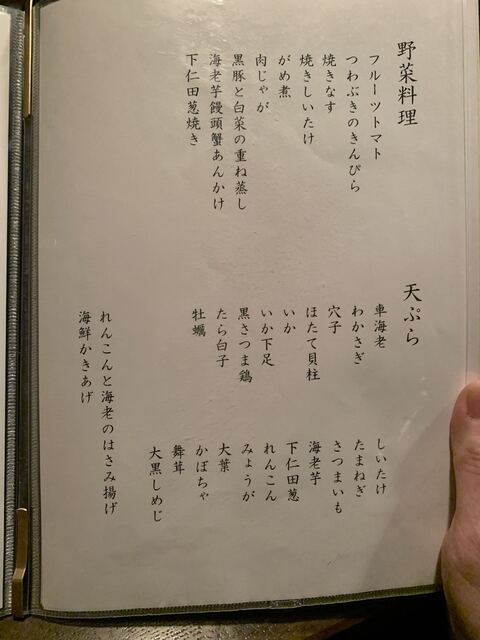 野菜料理
フルーツトマト
つわぶきのきんぴら
焼きなす
焼きしいたけ
がめ煮
肉じゃが
黒豚と白菜の重ね蒸し
海老芋饅頭蟹あんかけ
下仁田葱焼き
天ぷら
車海老
わかさぎ
穴子
ほたて貝柱
いか
いか下足
黒さつま鶏
たら白子
牡蠣
しいたけ
たまねぎ
さつまいも
海老芋
下仁田葱
れんこん
みょうが
大葉
かぼちゃ
舞茸
大黒しめじ
れんこんと海老のはさみ揚げ
海鮮かきあげ